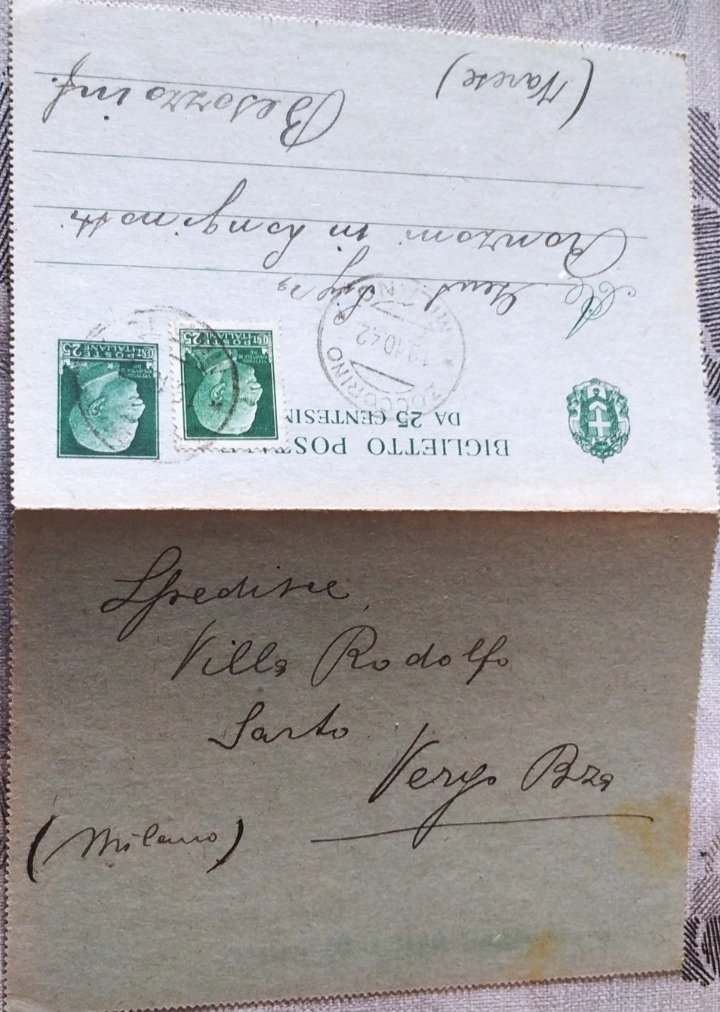 BIGLIETTO POS
DA 25 CENTESIMI
CENT 25
POSTE ITALIANE
CENT 25
POSTE ITALIANE
ZOCCORINO
19.10.42
MILANO
Al Gent Sig.ra
Ronzoni in Longinotti
Besozzo inf.
(Varese)
Spedisce
Villa Rodolfo
Sarto
Vergo Bza
(Milano)